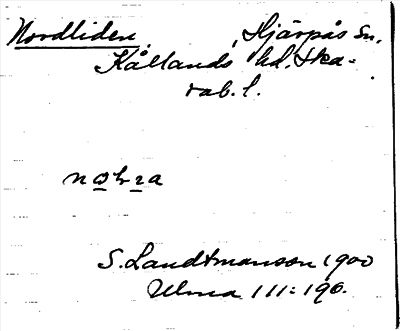 Nordliden, Hjärpås sn,
Kållands hd. Ska-
rab. l.
S. Landtmanson 1900
Ulma 111:196.